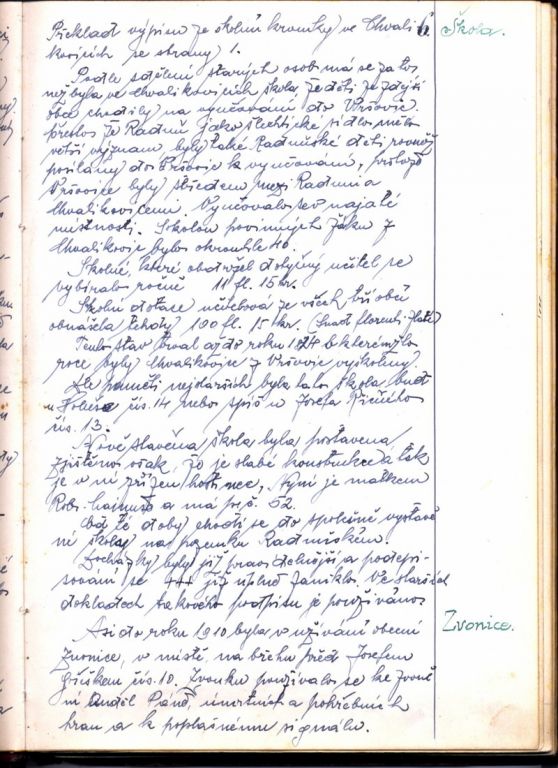 Překlad výpisu ze školní kroniky ve Chvali 6. Škola.
kovicích se strany 1.
Podle sdělení starých osob má se za to,
než byla ve Chvalikovicích škola, že děti ze zdejší
obce chodily na vyučování do Vršovic.
Přesto, že Raduň jako šlechtické sídlo mělo
větší význam, byly také Raduňské děti rovněž
posílány do Vršovic k vyučování, protože
Vršovice byly středem mezi Raduní a
Chvalikovicemi. Vyučovalo se v najaté
místnosti. Školou povinných žáků z
Chvalikovic bylo okrouhle 40.
Školné, které obdržel dotyčný učitel se
vybíralo ročně 11 fl. 15 kr.
Školní dotace učitelova ze všech tří obcí
obnášela tehdy 100 fl. 15 kr. (snad florenti-zlaté)
Tento stav trval až do roku 1784 v kterémžto
roce byly Chvalikovice z Vršovic vyškoleny.
Dle paměti nejstarších byla tato škola buď
u čís. 14 nebo spíš u Josefa
čís. 13.
Nově stavěna škola byla postavena
zjištěno však, že je slabé konstrukce a tak
je v ní zřízen hostinec, nyní je majetkem
Rob. a má po č. 52.
Od té doby chodí se do společně vystavě
né školy na pozemku Raduňském.
Docházky byly již pravidelnější a podepi-
sování se již úplně zaniklo. Ve starších
dokladech takového podpisu je používáno.
Asi do roku 1910 byla v užívání obecní Zvonice.
zvonice, v místě, na břehu před Josefem
čís. 10. Zvonku používalo se ke zvoně
ní Anděl Páně, úmrtních a pohřebních
hran a k poplašnému signálu.